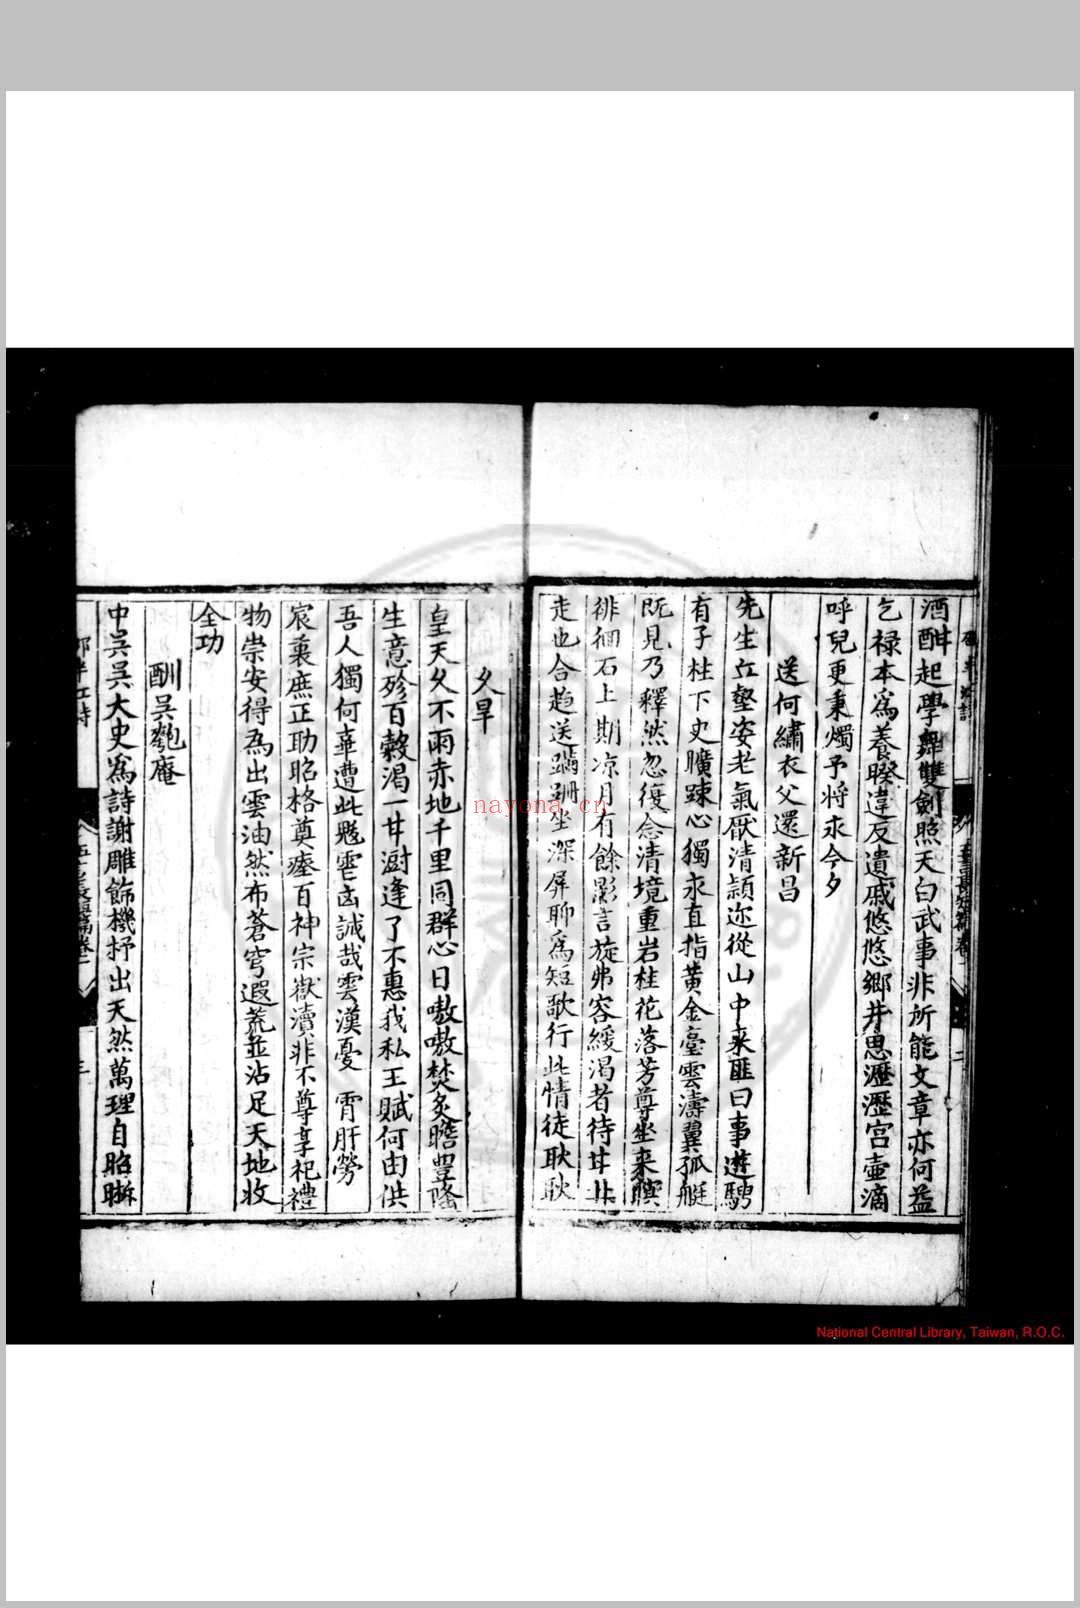 酒酣起學舞雙劍照天白武事非所能文章亦何益
乞祿本為養暌違反遺戚悠悠鄉井思瀝瀝宮壺滴
呼兒更秉燭予將永今夕
送何繡衣父還新昌
先生丘壑姿老氣厭清潁迩從山中來匪曰事遊騁
有子柱下史曠踈心獨永直指黃金臺雲濤翼孤艇
既見乃釋然忽復念清境重岩桂花落芳尊坐来
徘徊石上期凉月有餘影言旋弗容緩渴者待甘井
走也合趨送蹣跚坐深屏聊為短歌行此情徒耿耿
久旱
皇天久不雨赤地千里同群心日嗷嗷焚炙瞻豊隆
生意殄百穀渴一甘澍逢了不惠我私王賦何由供
吾人獨何辜遭此 誠哉雲漢憂 宵肝勞
宸衷庶正助昭格奠瘞百神宗嶽瀆非不尊享祀禮
物崇安得為出雲油然布蒼穹遐荒並沾足天地收
全功
酬吳匏庵
中吳吳大史為詩謝雕飾機抒出天然萬理自昭晰
邵半江詩
五言長短篇卷一
三
二
nayona.cn
National Central Library, Taiwan, R.O.C.